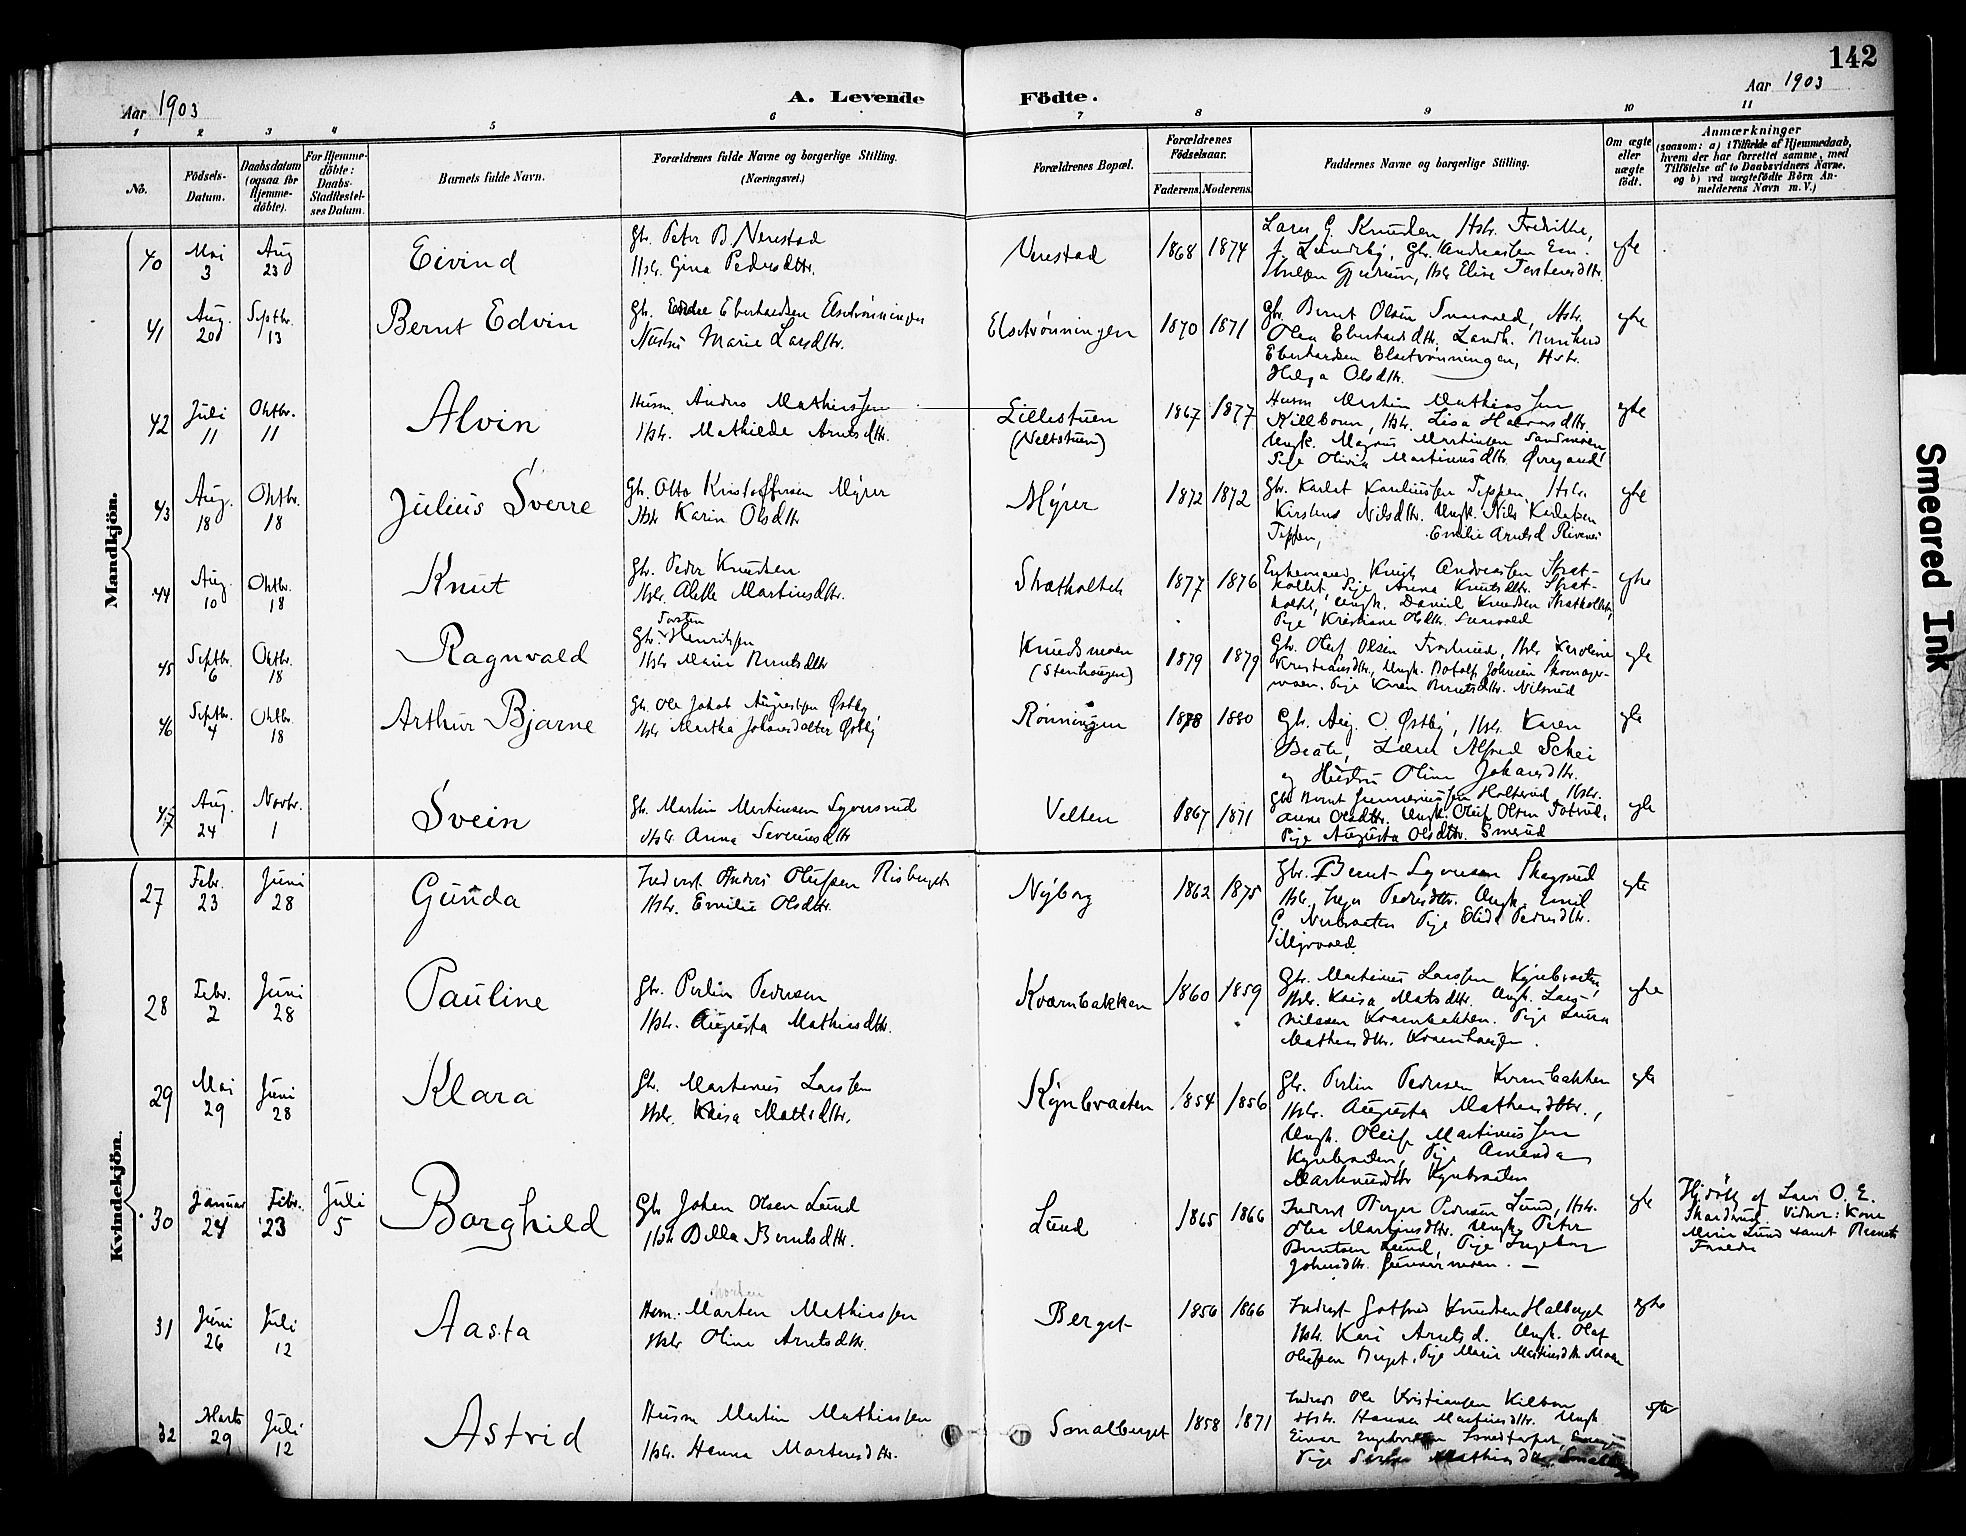 142
Aar 1903
A. Levende Födte.
Aar 1903
1 2 3 4 5 6 7 8 9 10 11
No.
Födsels-Datum.
Daabsdatum (ogsaa for Hjemme-döbte).
For Hjemme-döbte: Daabs-Stadfestel-ses Datum.
Barnets fulde Navn.
Forældrenes fulde Navne og borgerlige Stilling.
(Næringsvei.)
Forældrenes Bopæl.
Forældrenes Födselsaar.
Faderens. Moderens.
Faddernes Navne og borgerlige Stilling.
Om ægte eller uægte födt.
Anmærkninger
(saasom: a) i Tilfælde af Hjemmedaab,
hvem der har forrettet samme, med
Tilföielse af to Daabsvidners Navne,
og b) ved uægtefödte Börn An-
melderens Navn m. V.)
Mandkjön.
40 Mai 3 Aug 23 Eivind
Gbr. Peter B. Nerestad
Hstr. Gina Pedersdttr.
Nerestad 1868 1874
Lars G. Knudsen, Hstr. Fredrikke,
Gjurum, Hstr Elise Torstensdttr.
egte
41 Aug. 20 Septbr. 13 Bernt Edvin
Gbr. Eberhardsen Elsetrønningen
Hustru Marie Larsdttr.
Elsetrønningen 1870 1871
Gbr. Bernt Olsen Sunevold, Hstr.
Olea Eberhardsdttr. Landh. Bernhard
Eberhardsen Elsetrønningen, Hstr.
Helga Olsdttr.
egte
42 Juli 11 Oktbr. 11 Alvin
Husm. Anders Mathiassen
Hstr. Mathilde Arntsdttr.
Lillestuen
(Veltstuen)
1867 1877
Husm Martin Mathiassen
Killbonn, Hstr. Lisa
Ungk. Magnus Martinsen Sandmoen,
Pige Olivia Martinusdttr.
egte
43 Aug. 18 Oktbr. 18 Julius Sverre
Gbr. Otto Kristoffersen Myrer
Hstr Karin Olsdttr
Myrer 1872 1872
Gbr. Karlot Karliussen Tippen, Hstr.
Kirstine Nilsdttr. Ungk. Nils Karlotsen
Tippen, Emilie Arntsd
egte
44 Aug. 10 Oktbr. 18 Knut
Gbr. Peder Knudsen
Hstr. Alette Martinusdttr.
Stratkoltet 1877 1876
Enkemand Knut Andreassen Strat-
koltet, Pige Anna Knutsdttr. Strat-
koltet, Ungk. Daniel Knudsen Stratkoltet,
Pige Kristiane Olsdttr. Sunevold
egte
45 Septbr. 6 Oktbr. 18 Ragnvald
Torsten
Gbr. Henriksen
Hstr Marie Berntsdttr
Knudsmoen
(Stenhaugen)
1879 1879
Gbr. Olaf Olsen Hstr Karoline
Kristiansdttr, Ungk. Botolf Johnsen Skomager-
moen. Pige Karen Berntsdttr. Nilsrud
egte
46 Septbr. 4 Oktbr. 18 Arthur Bjarne
Gbr. Ole Jakob Augustsen Østby
Hstr Martha Johansdatter Østby
Rønningen 1878 1880
Gbr. Aug. O. Østby, Hstr. Karen
Beate, Lærer Alfred Schei
og Hustru Oline Johansdttr.
egte
47 Aug. 24 Novbr. 1 Svein
Gbr. Martin Martinsen Syversrud
Hstr. Anna Severinsdttr
Velten 1867 1871
Gbr Bernt Gunneriussen Holterud, Hstr.
Anne Olsdttr. Ungk. Oluf Olsen
Pige Augusta Olsdttr. Smerud
egte
Kvindekjön.
27 Febr. 23 Juni 28 Gunda
Inderst Anders Olufsen Risberget
Hstr. Emilie Olsdttr.
Nyborg 1862 1875
Gbr. Bernt Syversen Skogsrud
Hstr. Inger Pedersdttr. Ungk. Emil
G. Nerbraaten Pige Elida Pedersdttr.
egte
28 Febr. 2 Juni 28 Pauline
Gbr. Perlin Pedersen
Hstr. Augusta Mathisdttr.
Kvarnbakken 1860 1859
Gbr. Martinus Larssen Kynbraaten,
Hstr. Kaisa Matsdttr. Ungk. Lars
Nilssen Kvarnbakken. Pige Laura
Mathiasdttr. Kvarnhaugen.
egte
29 Mai 29 Juni 28 Klara
Gbr. Martinus Larssen
Hstr. Kaisa Mattisdttr.
Kynbraaten 1854 1856
Gbr. Perlin Pedersen Kvarnbakken
Hstr. Augusta Mathisdttr.,
Ungk. Oluf Martinussen
Kynbraaten, Pige Amanda
Martinusdttr Kynbraaten
egte
30 Januar 24 Febr. 23 Juli 5 Borghild
Gbr Johan Olsen Lund
Hstr Billa Berntsdttr.
Lund 1865 1866
Inderst Birger Pedersen Lund, Hstr.
Olea Martinusdttr. Ungk. Peter
Berntsen Lund, Pige Ingeborg
Johnsdttr. Gunnarmoen. —
egte
Hjdöbt af Lars O. E.
Skardrud. Vidner: Kone
Marie Lund samt Barnets
Forældre
31 Juni 26 Juli 12 Aasta
Hsm. Morten Mathiassen
Hstr Oline Arntsdttr.
Berget 1856 1866
Inderst Gotfred Knudsen Halberget
Hstr. Kari Arntsd. Ungk. Olaf
Olufsen Berget, Pige Marie Martinsdttr Moen
egte
32 Marts 29 Juli 12 Astrid
Husm Martin Mathiassen
Hstr. Hanna Martensdttr.
Smalberget 1858 1871
Inderst Ole Kristiansen Kilbon
Hstr. Hanna Martinsdttr. Ungk
Einar
Pige Mathiasdttr. Smalberg
egte
Smeared Ink